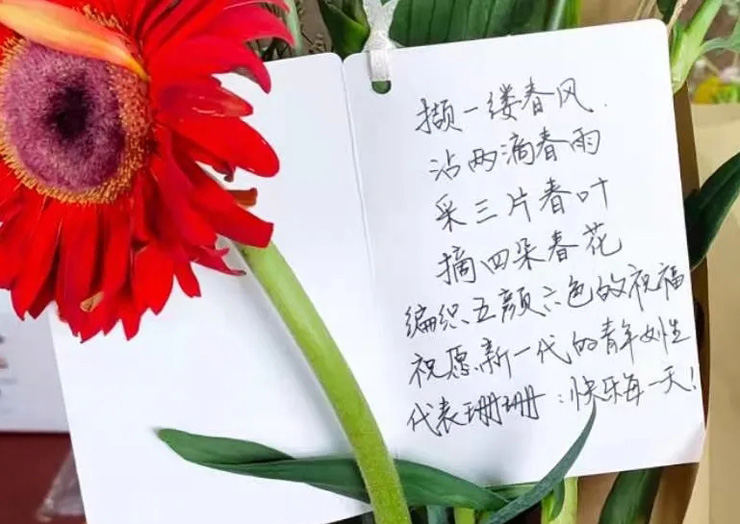 撷一缕春风.
沾两滴春雨
采三片春叶
摘四朵春花
编织五颜六色的祝福
祝愿新一代的青年女性
代表珊珊：快乐每一天！